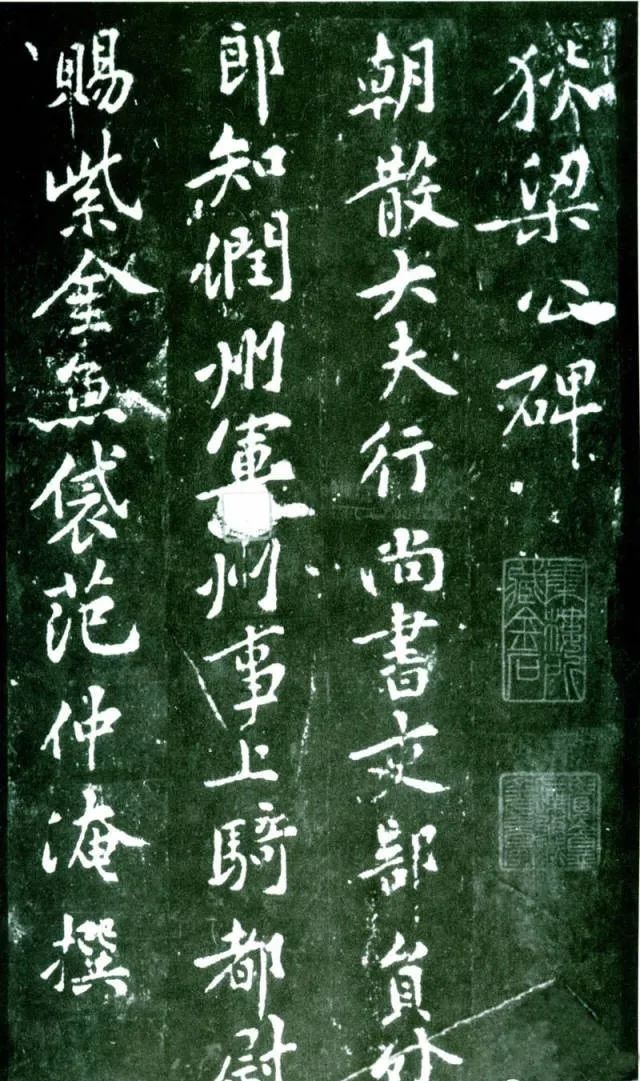 狄梁公碑
朝散大夫行尚書吏部員外
郎知潤州軍州事上騎都尉
賜紫金魚袋范仲淹撰
東樓所
藏金石